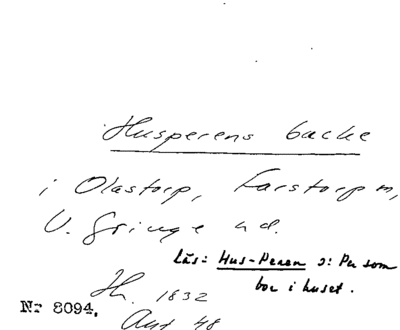 Husperens backe
i Olastorp, Farstorp sn,
V. Göinge hd.
Läs: Hus-Peren ɔ: Per som
bor i huset.
Hn. 1832
Nr 8094.
48